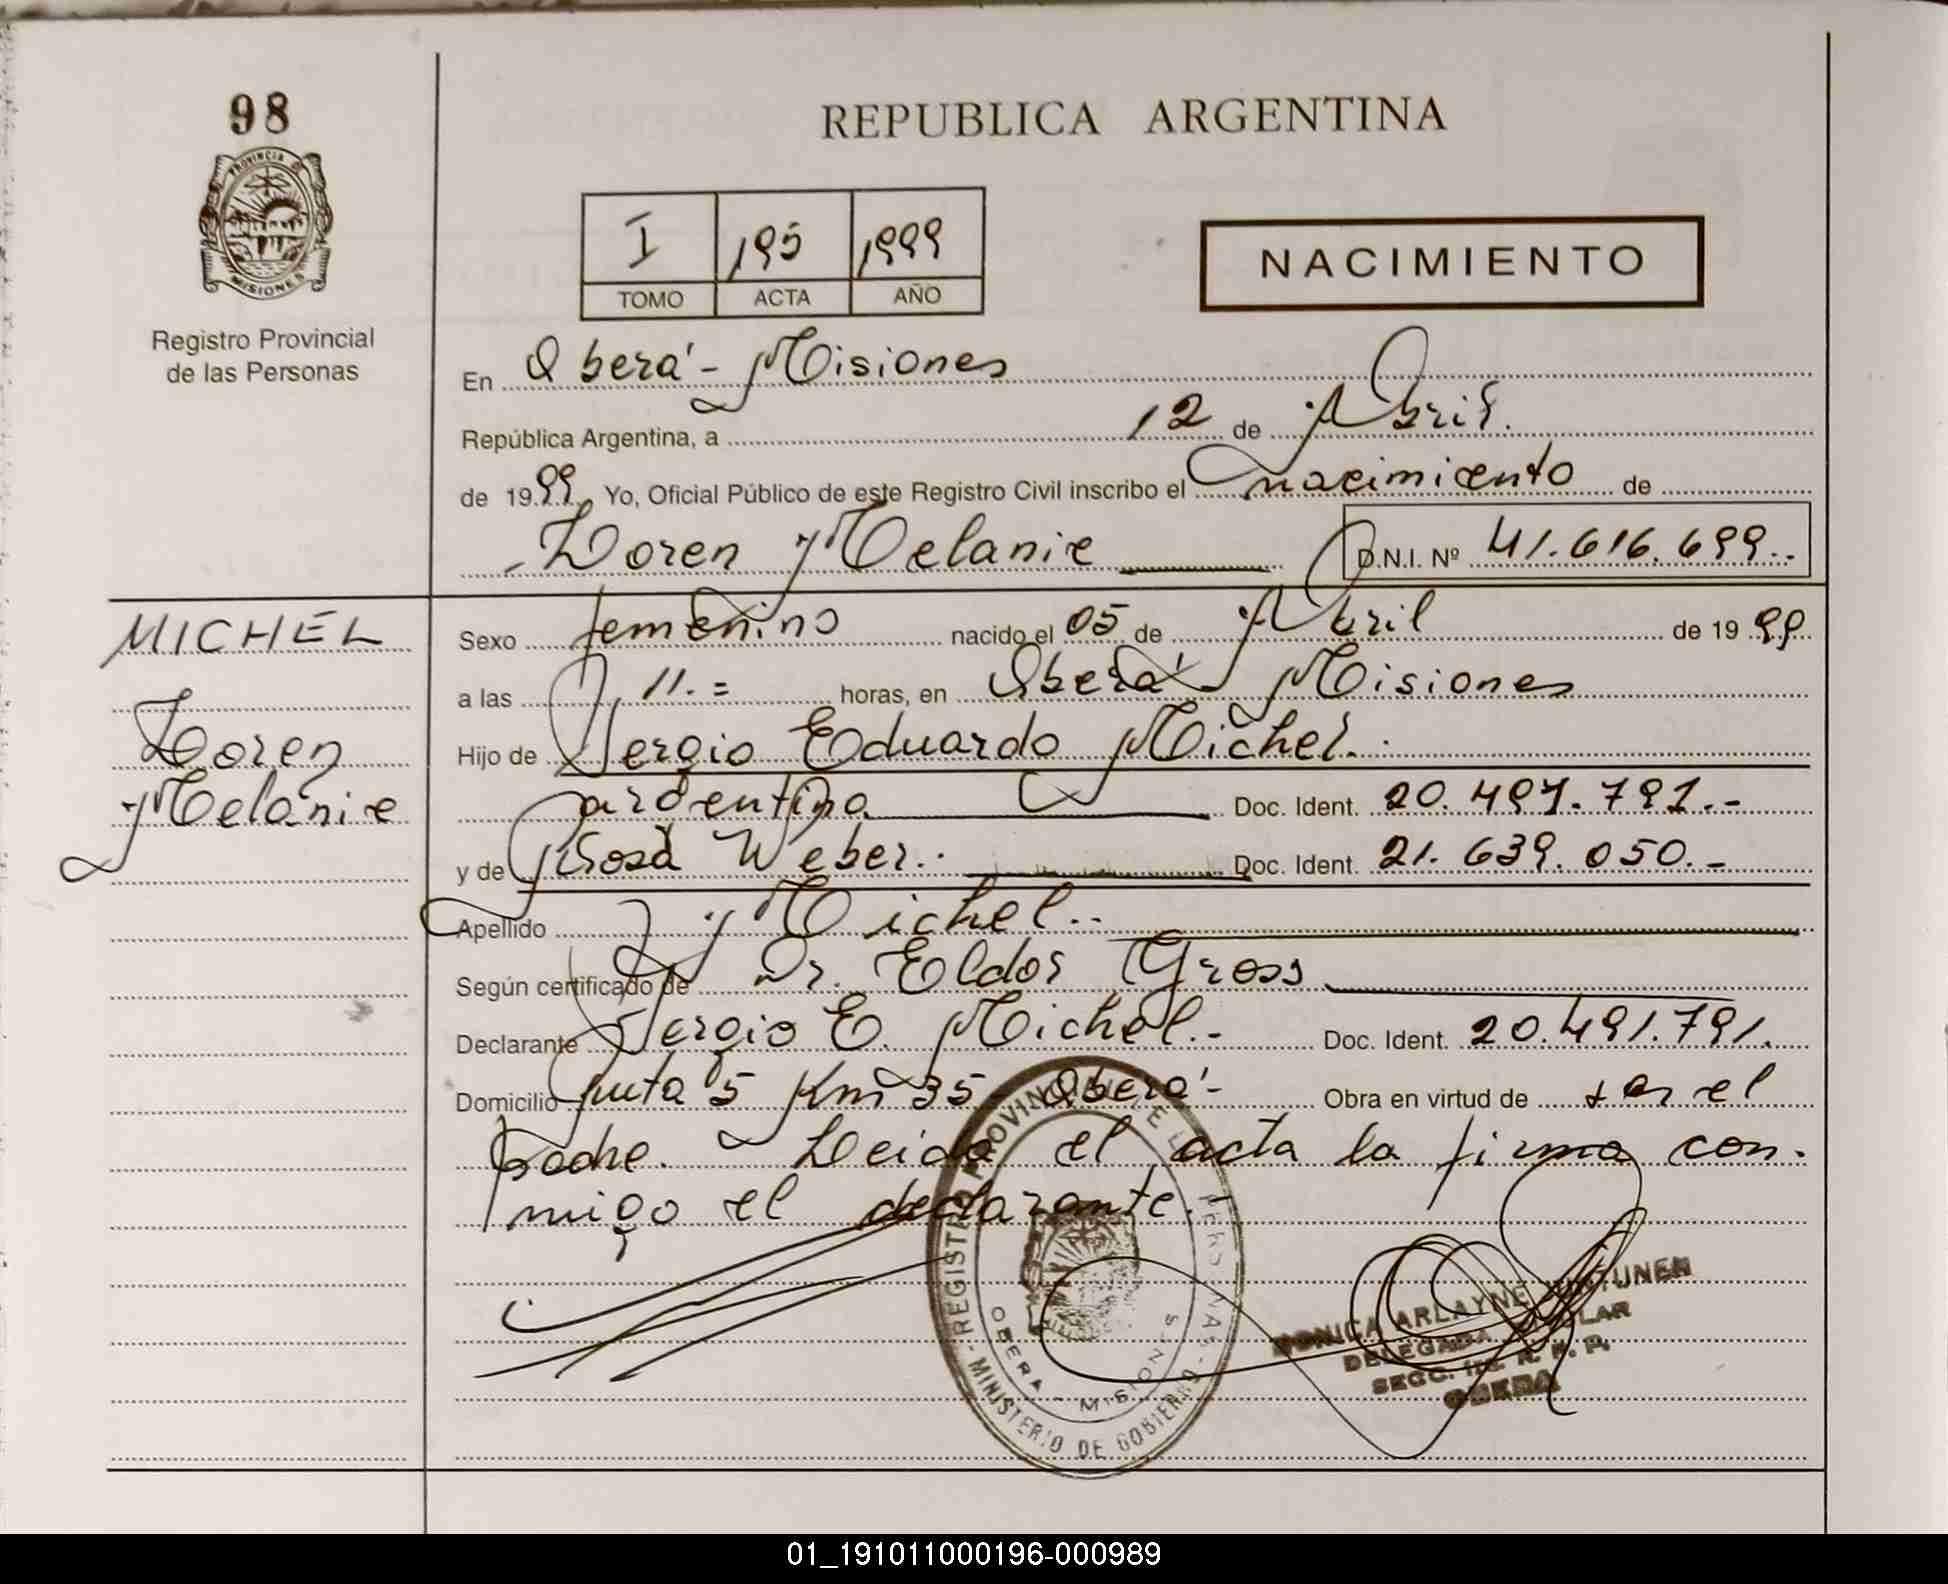 98
PROVINCIA DE
MISIONES
Registro Provincial
de las Personas
REPUBLICA ARGENTINA
I 195 1999
TOMO ACTA AÑO
NACIMIENTO
En Oberá - Misiones
República Argentina, a 12 de Abril.
de 1999 Yo, Oficial Público de este Registro Civil inscribo el nacimiento de
Loren Melanie D.N.I. Nº 41.616.699..
MICHEL
Loren
Melanie
Sexo femenino nacido el 05 de Abril de 1999
a las 11.= horas, en Oberá Misiones
Hijo de Sergio Eduardo Michel.
argentina Doc. Ident. 20.491.791.-
y de Rosa Weber.. Doc. Ident. 21.639.050.-
Apellido Michel..
Según certificado de Dr. Eldor Gross
Declarante Sergio E. Michel.- Doc. Ident. 20.491.791.
Domicilio Ruta 5 Km 35 - Oberá - Obra en virtud de ser el
padre. Leida el acta la firma con-
migo el declarante.
REGISTRO PROVINCIAL DE LAS PERSONAS - MINISTERIO DE GOBIERNO
OBERA - MISIONES
MONICA ARLAYNE
DELEGADA TITULAR
SECC. R. P. P.
OBERA
01_191011000196-000989